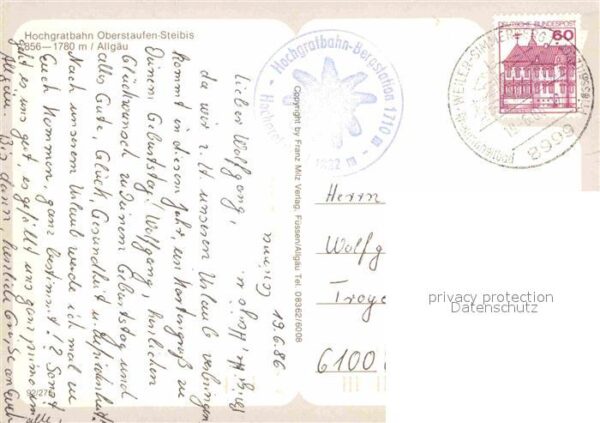 Hochgratbahn Oberstaufen-Steibis
856—1780 m / Allgäu
19.6.86
lieber Wolfgang,
da wir z.Zt unseren Urlaub verbringen
kommt in diesem Jahr, ein Kartengruß zu
Deinem Geburtstag! Wolfgang, herzlichen
Glückwunsch zu Deinem Geburtstag und
alles Gute, Glück, Gesundheit u.
Nach unserem Urlaub werde ich mal zu
Euch kommen, ganz bestimmt!? Sonst
geht es uns gut es gefällt uns ganz prima im
Allgäu. Bis dann herzliche Grüße an Euch
Copyright by Franz Milz Verlag, Füssen/Allgäu Tel. 08362/6008
Hochgratbahn-Bergstation 1710 m
1832 m
DEUTSCHE BUNDESPOST
60
WEILER-SIMMERBERG
8999
Herrn
Wolfg
Troye
6100
privacy protection
Datenschutz